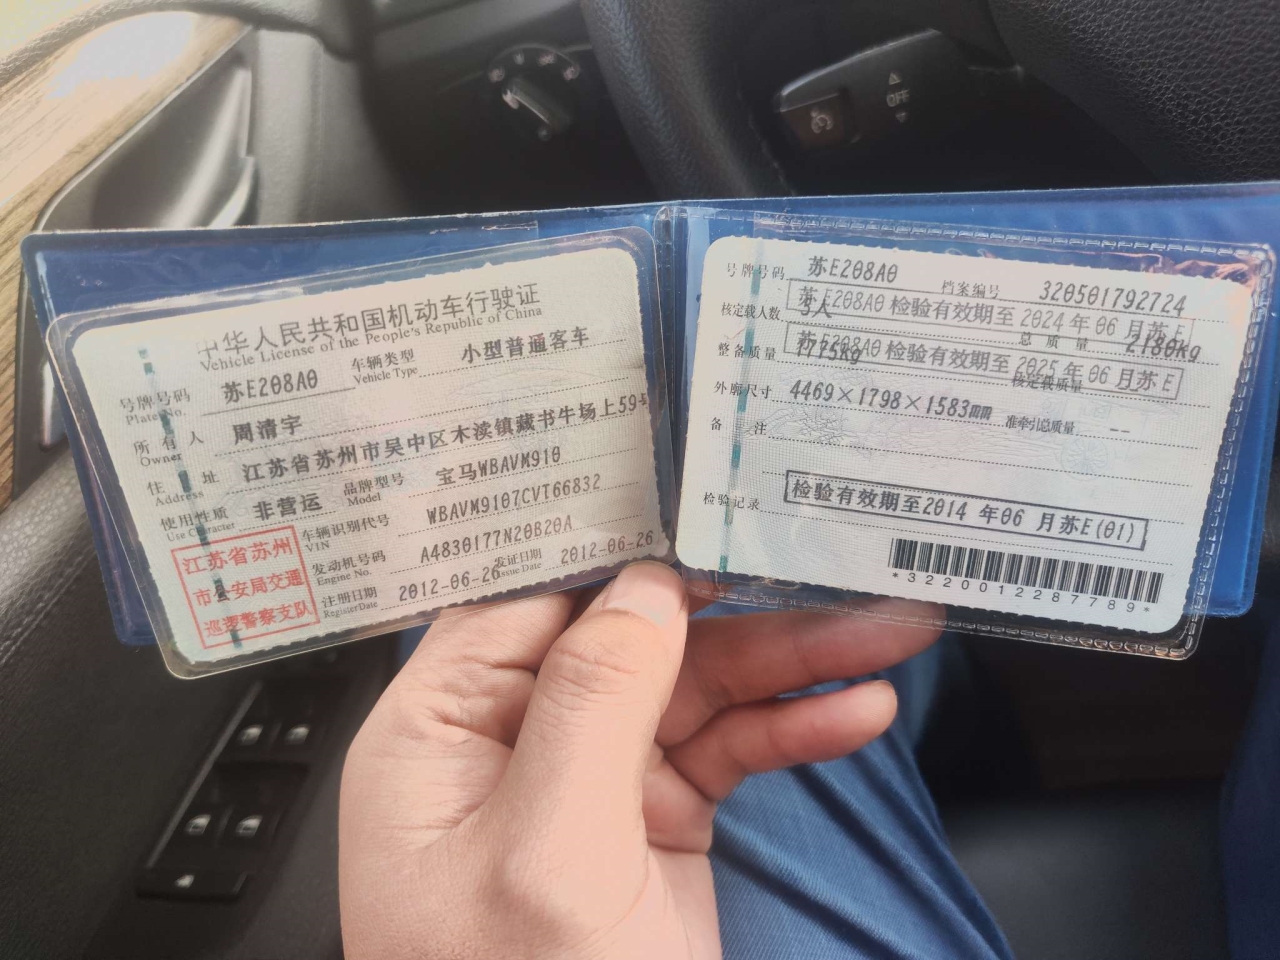 中华人民共和国机动车行驶证
Vehicle License of the People's Republic of China
号牌号码 苏E208A0 车辆类型 小型普通客车
Plate No. Vehicle Type
所有人 周清宇
Owner
住址 江苏省苏州市吴中区木渎镇藏书牛场上59号
Address
使用性质 非营运 品牌型号 宝马WBAVM910
Use Character Model
车辆识别代号 WBAVM9107CVT66832
VIN
发动机号码 A4830177N20B20A
Engine No.
注册日期 2012-06-26 发证日期 2012-06-26
Register Date Issue Date
江苏省苏州
市公安局交通
巡逻警察支队
号牌号码 苏E208A0 档案编号 320501792724
苏E208A0 检验有效期至 2024 年 06 月苏E
核定载人数 5人 总质量 2180kg
苏E208A0 检验有效期至 2025 年 06 月苏E
整备质量 1775kg 核定载质量
外廓尺寸 4469×1798×1583mm 准牵引总质量 --
备注
检验记录 检验有效期至2014 年06 月苏E(01)
*3220012287789*
OFF